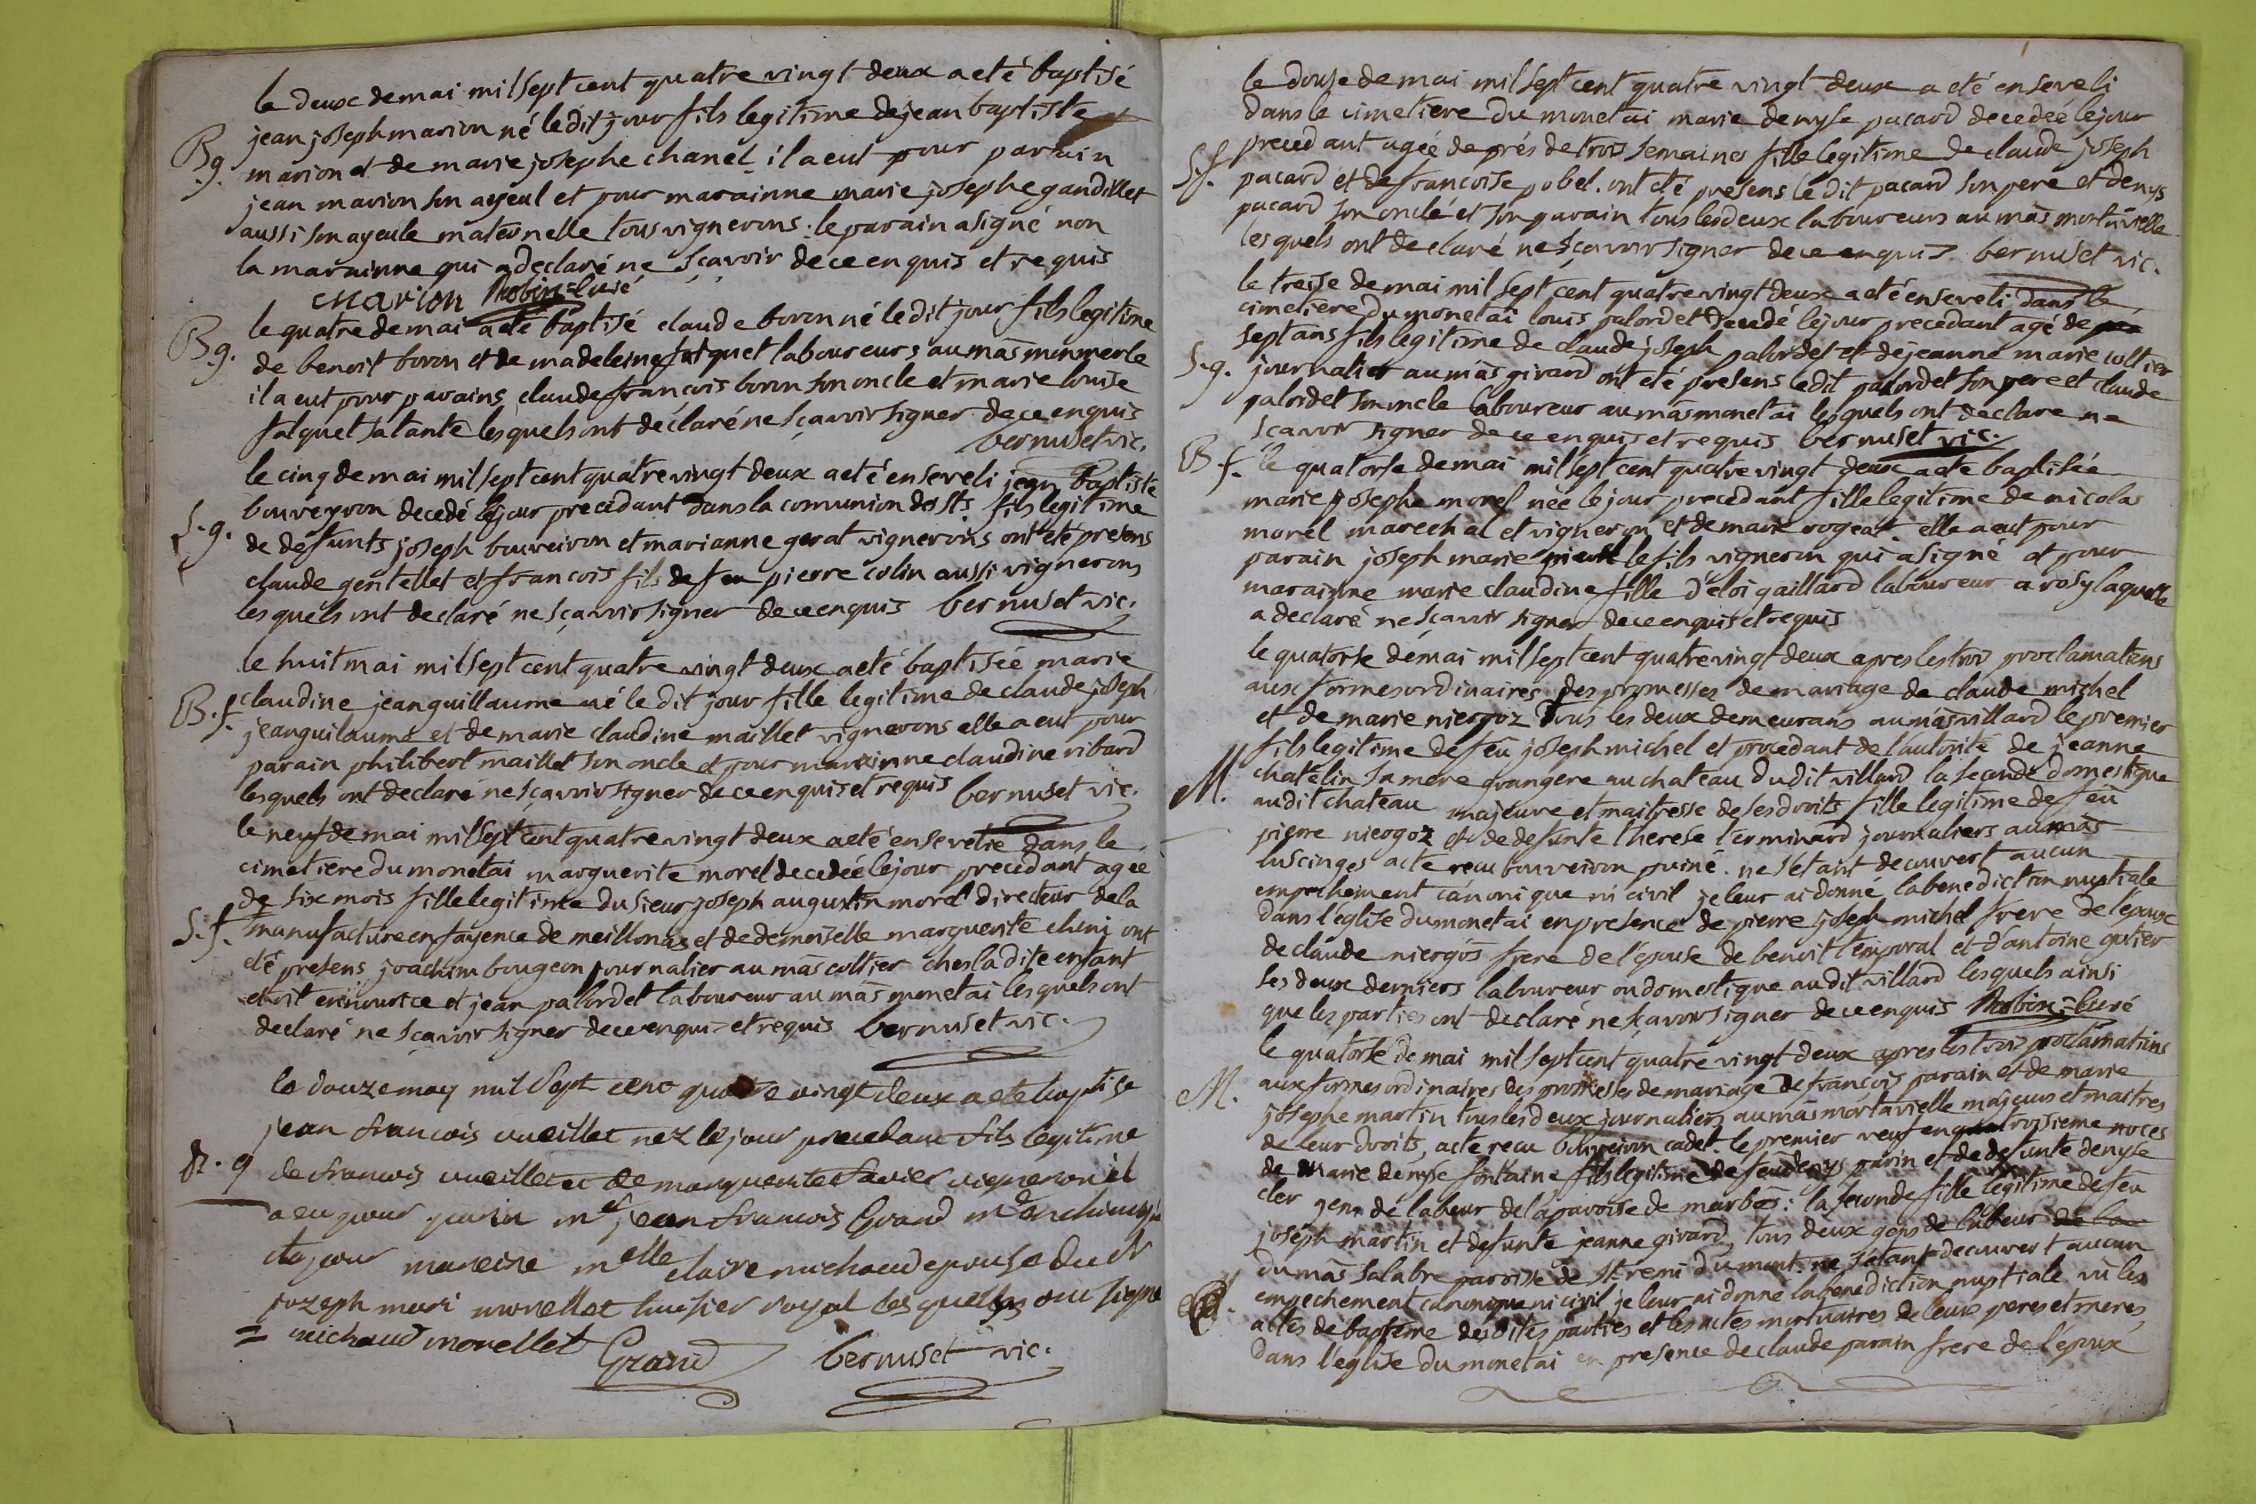 le deux de mai mil sept cent quatre vingt deux a eté baptisé
jean joseph marion né ledit jour fils legitime de jean baptiste
B.g.
marion et de marie josephe chanel il a eut pour parain
jean marion son ayeul et pour marainne marie josephe gandillet
aussi son ayeule maternelle tous vignerons. le parain a signé non
la marainne qui a declaré ne sçavoir de ce enquis et requis
marion Robin = curé
le quatre de mai a eté baptisé claude boron né le dit jour fils legitime
B.g.
de benoit boron et de madeleine falquet laboureurs au mas monmerle
il a eut pour parains claude francois boron son oncle et marie louise
falquet sa tante lesquels ont déclaré ne sçavoir signer de ce enquis
bernuset vic.
le cinq de mai mil sept cent quatre vingt deux a eté enseveli jean Baptiste
bouveyron decedé le jour precedant dans la comunion des sts fils legitime
S.g.
de defunts joseph bouveiron et marianne gerat vignerons ont eté presens
claude gentellet et francois fils de feu pierre colin aussi vignerons
lesquels ont declaré ne sçavoir signer de ce enquis bernuset vic.
le huit mai mil sept cent quatre vingt deux a eté baptisée marie
B.f.
claudine jeanguillaume né le dit jour fille legitime de claude joseph
jeanguilaume et de marie claudine maillet vignerons elle a eut pour
parain philibert maillet son oncle et pour marainne claudine ribard
lesquels ont declaré ne sçavoir signer de ce enquis et requis bernuset vic.
le neuf de mai mil sept cent quatre vingt deux a eté ensevelie dans le
cimetiere du monetai marguerite morel decedée le jour precedant agée
de six mois fille legitime du sieur joseph augustin morel directeur de la
S.f.
manufacture en fayence de meillonas et de demoiselle marguerite ont
eté presens joachim bougeon journalier au mas coltier ches la dite enfant
etoit en nourice et jean palordet laboureur au mas monetai lesquels ont
declaré ne sçavoir signer de ce enquis et requis bernuset vic.
le douze may mil sept cent quatre vingt deux a ete baptise
jean francois vueillet nez le jour precedant fils legitime
B. g
de francois vueillet et de marguerite favier vigneron il
a eu pour parin mr jean francois Grand me en chirurgie
et pour mareine melle claire michaud epouse du sr
jozeph mari morellet huisier royal lesquelles ont signe
= michaud morellet Grand bernuset vic.
le douse de mai mil sept cent quatre vingt deux a eté enseveli
dans le cimetiere du monetai marie denyse pacard decedée le jour
precedant agée de prés de trois semaines fille legitime de claude joseph
S.f.
pacard et de francoise pobel. ont eté presens le dit pacard son pere et denys
pacard son oncle et son parain tous les deux laboureurs au mas mortarielle
lesquels ont declaré ne sçavoir signer de ce enquis. bernuset vic.
le treise de mai mil sept cent quatre vingt deux a eté enseveli dans le
cimetiere du monetai louis palordet decedé le jour precedant agé de
sept ans fils legitime de claude joseph palordet et de jeanne marie coltier
S.g.
journalier au mas girard ont eté presens le dit palordet son pere et claude
palordet son oncle laboureur au mas monetai lesquels ont declare ne
scavoir signer de ce enquis et requis bernuset vic.
B f.
le quatorse de mai mil sept cent quatre vingt deux a ete baptisée
marie josephe morel née le jour precedant fille legitime de nicolas
morel marechal et vigneron et de marie rogeat. elle a eut pour
parain joseph marie le fils vigneron qui a signé et pour
marainne marie claudine fille d'eloi gaillard laboureur a rosy laquelle
a declaré ne sçavoir signer de ce enquis et requis
le quatorse de mai mil sept cent quatre vingt deux apres les trois proclamations
aux formes ordinaires des promesses de mariage de claude michel
et de marie niergoz tous les deux demeurans au mas villard le premier
fils legitime de feu joseph michel et procedant de l'autorité de jeanne
M.
chatelin sa mere grangere au chateau du dit villard la seconde domestique
au dit chateau majeure et maitresse de ses droits fille legitime de feu
pierre niergoz et de defunte therese terminard journaliers au mas
luscinges acte recu bouveiron puiné. ne s'etant decouvert aucun
empechement canonique ni civil je leur ai donné la benediction nuptiale
dans l'eglise du monetai en presence de pierre joseph michel frere de l'epoux
de claude niergos frere de l'epouse de benoit temporal et d'antoine gutier
les deux derniers laboureur ou domestique au dit villard lesquels ainsi
que les parties ont declaré ne scavoir signer de ce enquis Robin = curé
le quatorse de mai mil sept cent quatre vingt deux apres les trois proclamations
M.
aux formes ordinaires des promesses de mariage de françois parain et de marie
josephe martin tous les deux journaliers au mas mortarielle majeurs et maitres
de leur droits, acte recu bouveiron cadet. le premier veuf en troisieme noces
de marie denyse fontaine fils legitime de feu denys parin et de defunte denyse
cler gens de labeur de la paroise de marbos: la seconde fille legitime de feu
joseph martin et defunte jeanne girard, tous deux gens de labeur
du mas salabre paroisse de st. remi du mont. ne s'etant decouvert aucun
empechement canonique ni civil je leur ai donné la benediction nuptiale vu les
actes de baptême desdites parties et les actes mortuaires de leurs peres et meres,
dans l'eglise du monetai en presence de claude parain frere de l'epoux